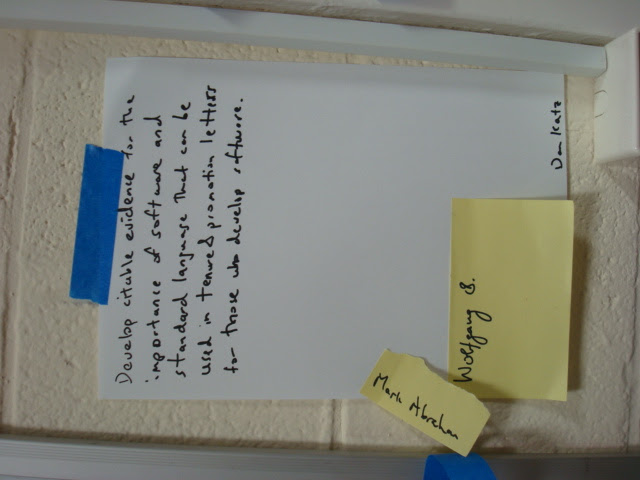 Develop citable evidence for the
importance of software and
standard language that can be
used in tenure & promotion letters
for those who develop software.
Mark Abraham
Wolfgang B.
Dan Katz